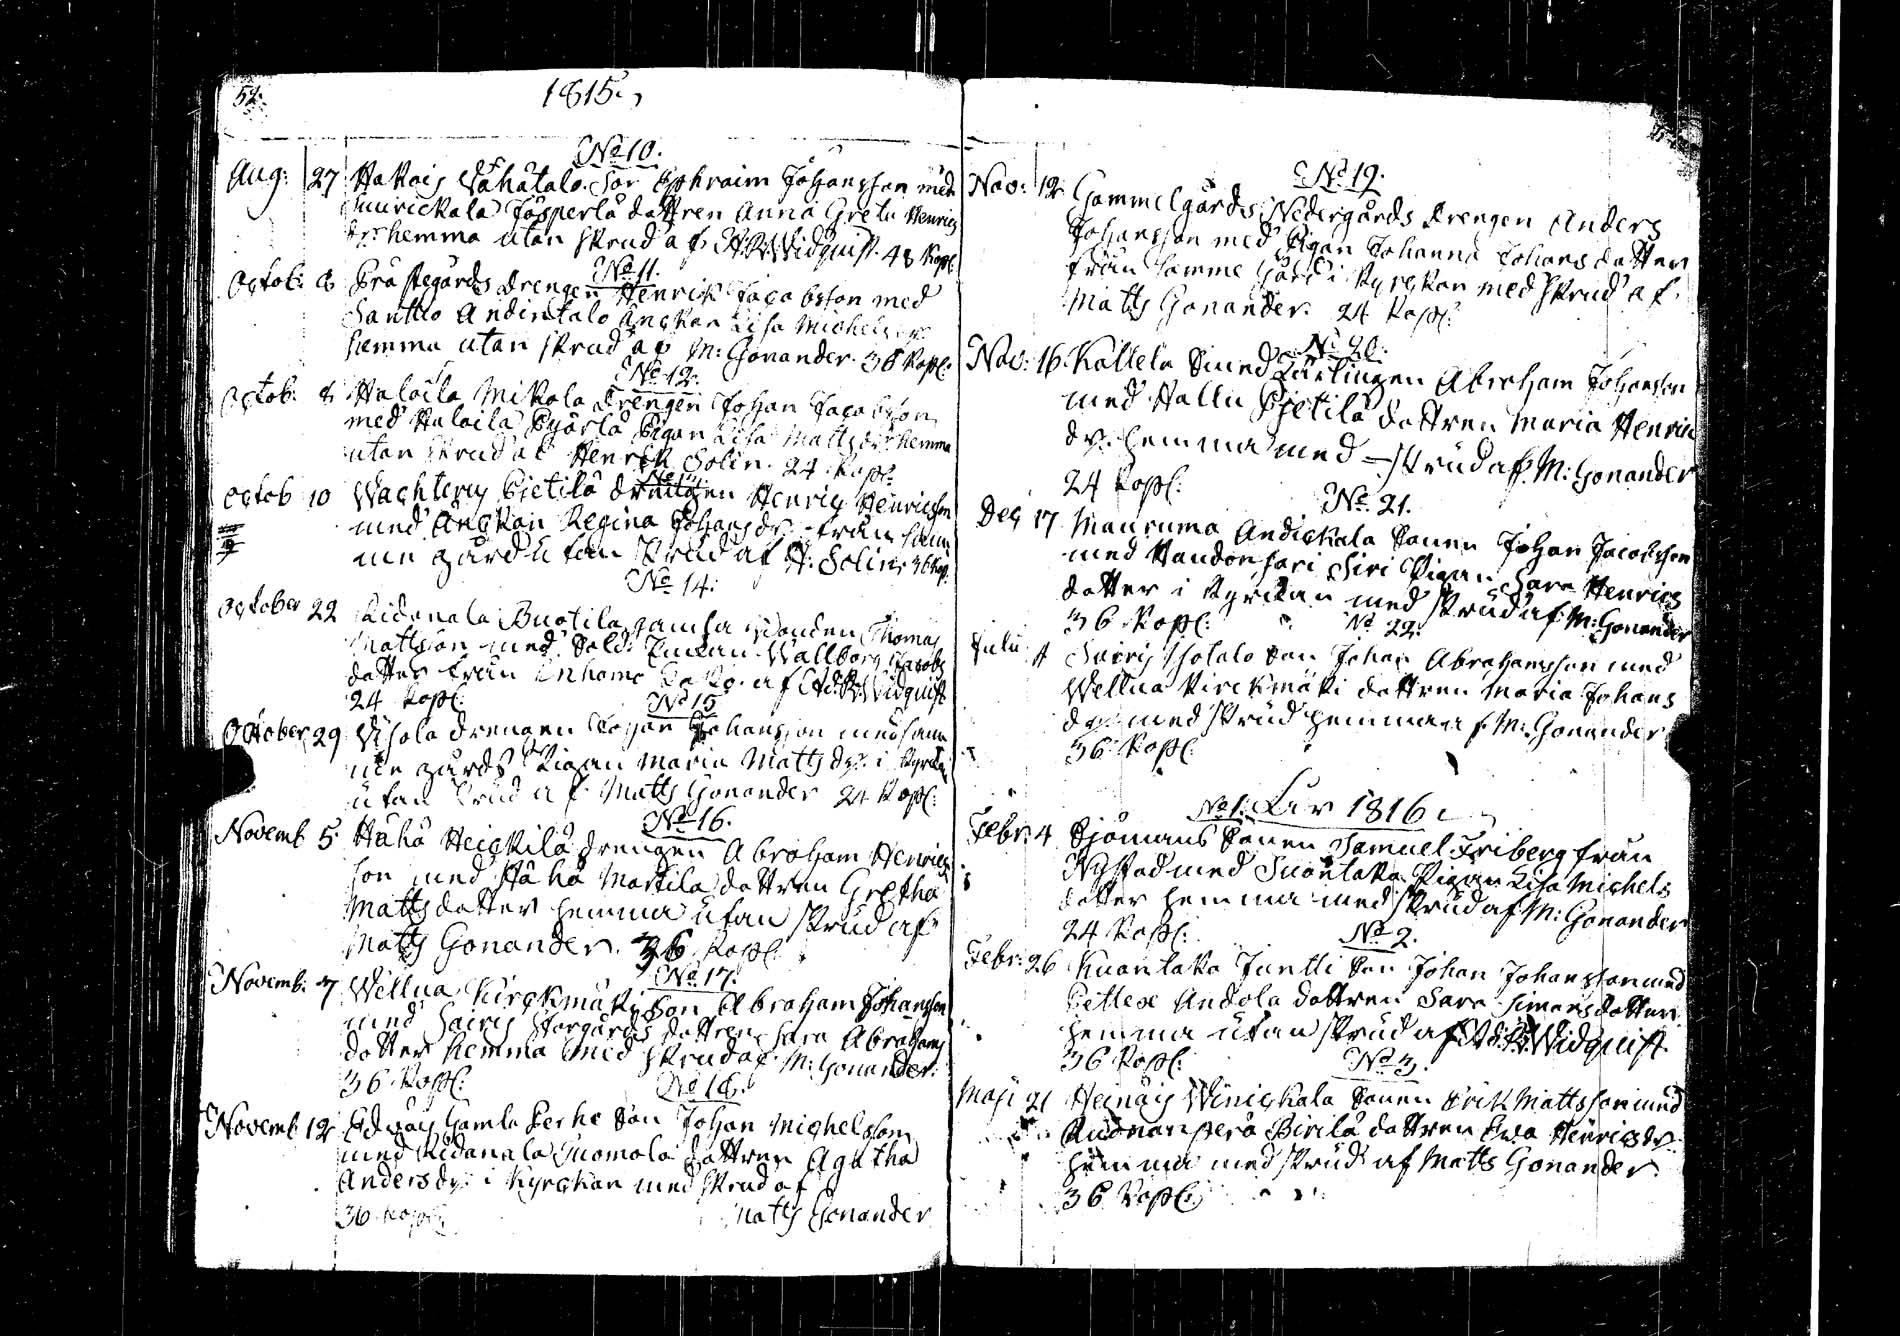 52.
1815.
No 10.
Aug: 27 Hakois Wähätalo Son Ephraim Johansson med
Jäsperlä dottren Anna Greta Henrics
hemma utan skrud af Widquist. 48 kop:
No 11.
Octob: 8 Prästegårds Drengen Henrik Jacobsson med
Santtio Andintalo Änckan Lisa Michels
hemma utan skrud af M: Gonander. 36 kop:
No 12.
Octob. 8 Halaila Mikola Drengen Johan Jacobsson
med Halaila Pigan Lisa Matts dr hemma
utan skrud af Henrik Solin. 24 kop:
Octob 10 Pietilä Drengen Henric Henricsson
med Änckan Regina Johans dr från sam
me gård utan skrud af H. Solin. 36 kop.
No 14.
October 22 gamla Thomas
Mattsson med Sold: Enkan Wallborg Jacobs
dotter från af Widquist
24 kop:
No 15
October 29 drengen Johan Johansson med sam
me gårds Pigan Maria Matts dr i Kyrckan
utan skrud af Matts Gonander 24 kop:
No 16.
Novemb 5. Hähä Heickilä drengen Abraham Henrics
son med Hähä Marttila dottren Gretha
Matts dotter hemma utan skrud af
Matts Gonander. 36 kop:
No 17.
Novemb: 7 Wellua Kirckmäki Son Abraham Johansson
med Sairis Storgårds dottren Sara Abrahams
dotter hemma med skrud af M: Gonander.
36 kop:
No 18.
Novemb 12 Gamla Perhe Son Johan Michelsson
med dottren Agatha
Anders dr i Kyrckan med skrud af
36 kop: Matts Gonander
No 19.
Nov: 12 Gammelgårds Nedergårds Drengen Anders
Johansson med Pigan Johanna Johans dotter
från samme Gård i Kyrckan med skrud af
Matts Gonander. 24 kop:
No 20.
Nov: 16. Kallela Smed Lärlingen Abraham Johansson
med Hallu Pietilä dottren Maria Henrics
dr. hemma med skrud af M: Gonander
24 kop:
No 21.
Dec 17 Maurumo Andickala Sonen Johan Jacobsson
med Siri Pigan Sara Henrics
dotter i Kyrckan med skrud af M: Gonander
36 kop:
No 22.
Sairis Isotalo Son Johan Abrahamsson med
Wellua Kirckmäki dottren Maria Johans
dr med skrud hemma af M: Gonander
36 kop:
No 1. År 1816
Febr: 4 Sjömans Sonen Samuel Friberg från
Nystad med Pigan Lisa Michels
dotter hemma med skrud af M: Gonander
24 kop:
No 2.
Febr: 26 Juntti Son Johan Johansson med
Andola dottren Sara Simons dotter
hemma utan skrud af Widquist.
36 kop:
No 3.
Maji 21 Heinäis Winickala Sonen Erik Mattsson med
Pirilä dottren Ewa Henrics dr.
hemma med skrud af Matts Gonander.
36 kop: